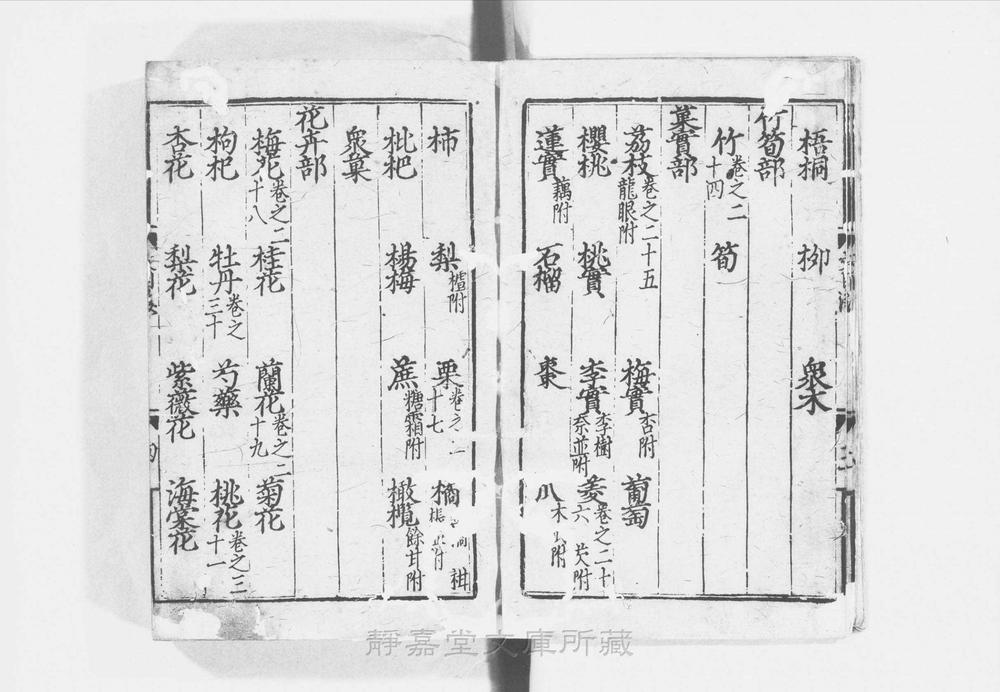 梧桐 柳 衆木
竹筍部
竹卷之二十四 筍
菓實部
荔枝卷之二十五龍眼附 梅實杏附 葡萄
櫻桃 桃實 李實李樹柰並附 菱卷之二十六芡附
蓮實藕附 石榴 棗 木附
柿 梨樝附 栗卷之二十七 橘
枇杷 楊梅 蔗糖霜附 橄欖餘甘附
衆菓
花卉部
梅花卷之二十八 桂花 蘭花卷之二十九 菊花
枸杞 牡丹卷之三十 芍藥 桃花卷之三十一
杏花 梨花 紫薇花 海棠花
靜嘉堂文庫所藏